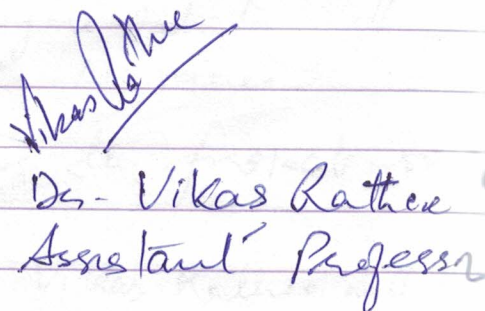 Vikas Rathee
Dr. Vikas Rathee
Assistant Professor